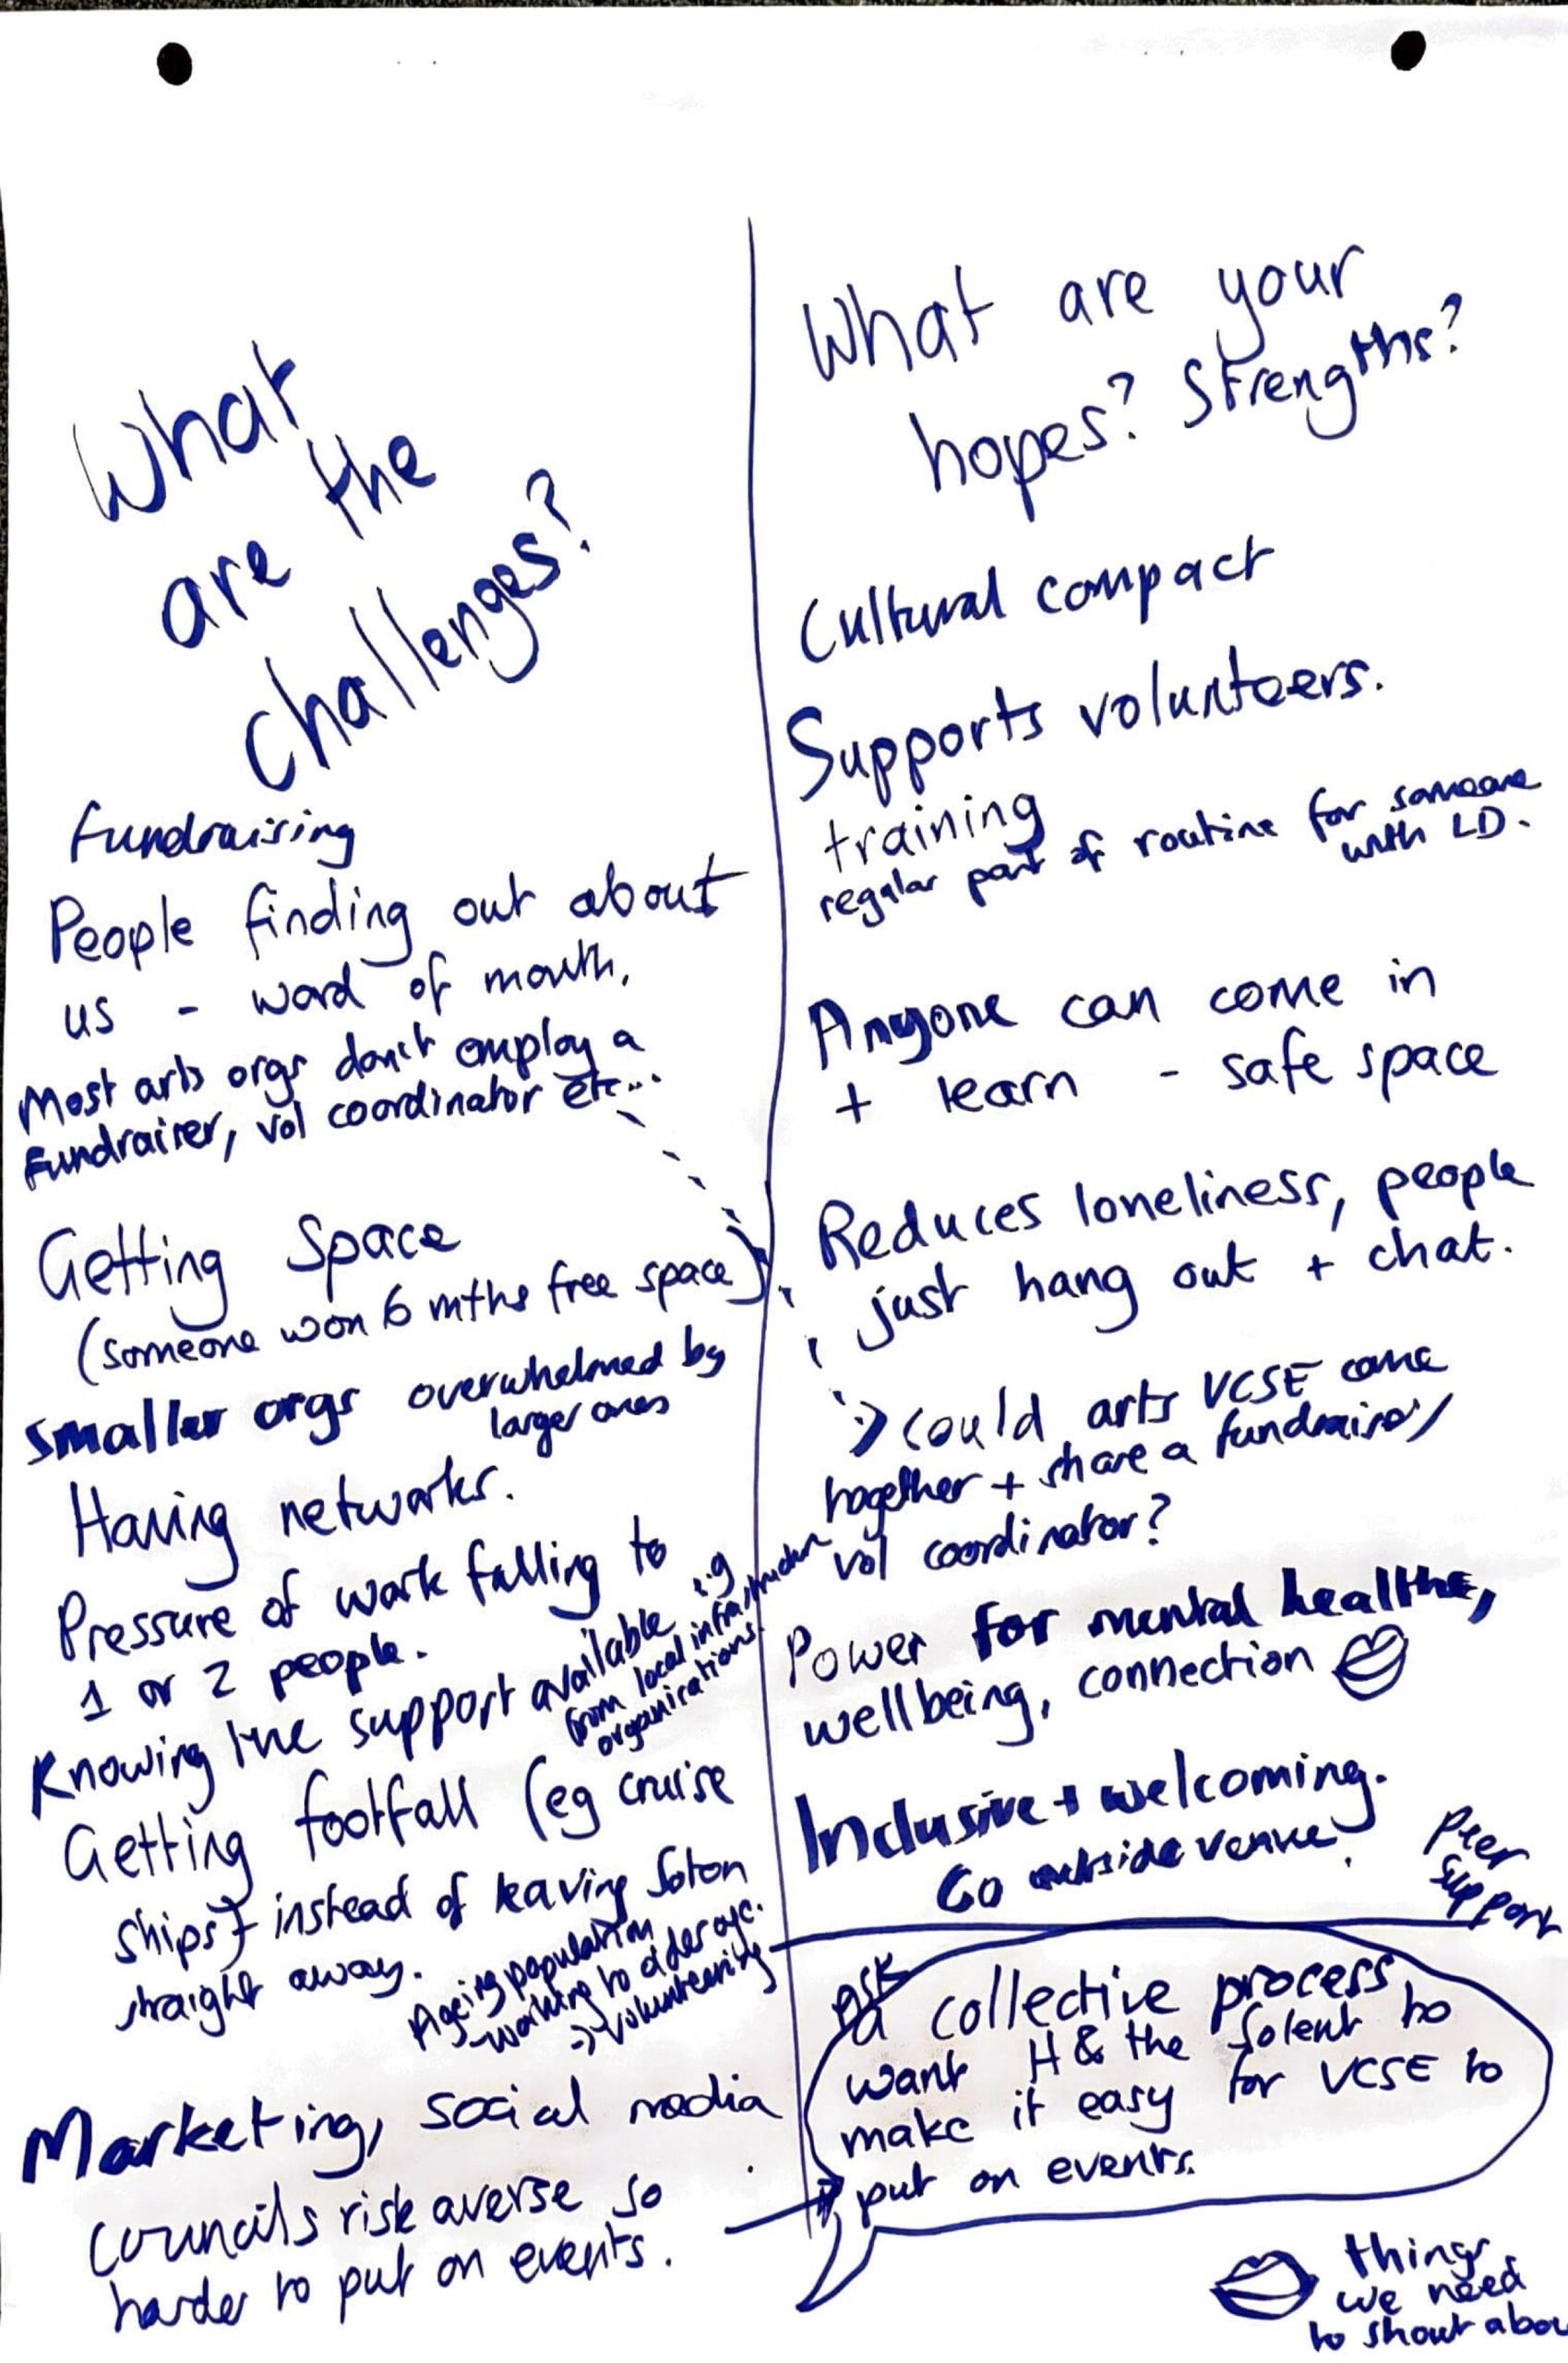 What
are the
challenges?
Fundraising
People finding out about
us - word of mouth.
Most arts orgs don't employ a
Fundraiser, vol coordinator etc...
Getting Space
(someone won 6 mths free space)
smaller orgs overwhelmed by
larger ones
Having networks.
Pressure of work falling to
1 or 2 people.
Knowing the support available e.g
from local infrastructure
organisations.
Getting footfall (eg cruise
ships) instead of leaving Soton
straight away.
Ageing population
- working to older age.
=> volunteering
Marketing, social media
Councils risk averse so
harder to put on events.
What are your
hopes? Strengths?
Cultural compact
Supports volunteers.
training
regular part of routine for someone
with LD.
Anyone can come in
+ learn - safe space
Reduces loneliness, people
just hang out + chat.
> could arts VCSE come
together + share a fundraiser/
vol coordinator?
Power for mental health,
wellbeing, connection
Inclusive + welcoming.
Go outside venue.
Peer
support
ASK
a collective process,
want H & the Solent to
make it easy for VCSE to
put on events.
things
we need
to shout abou